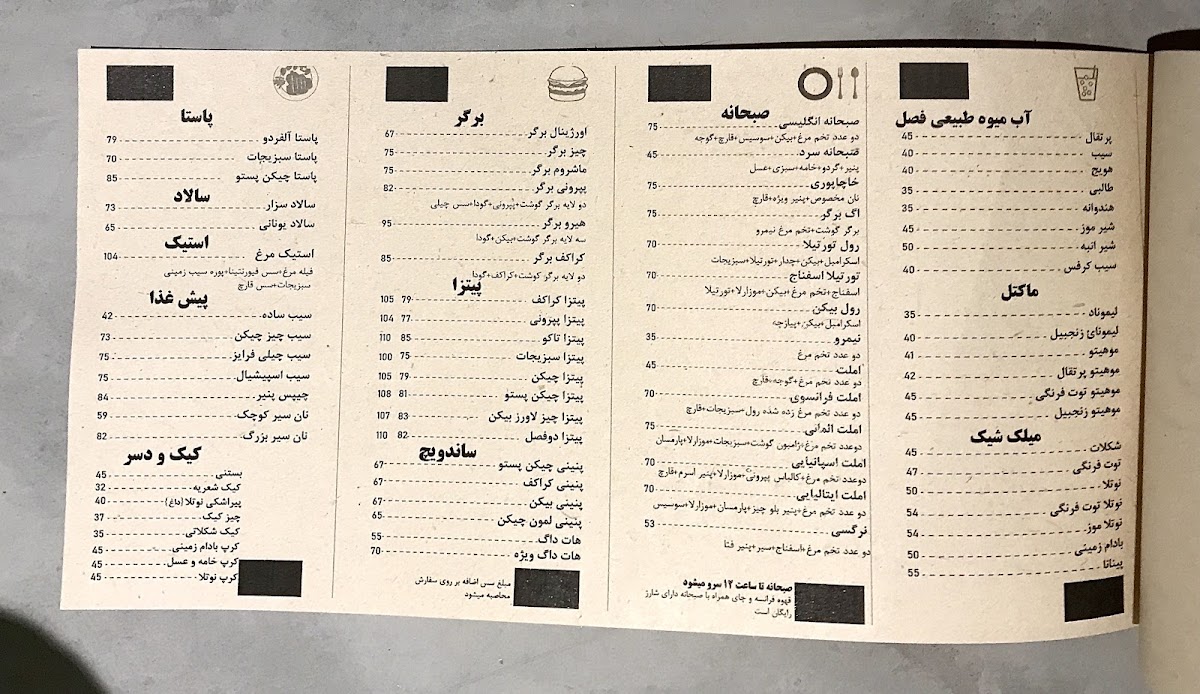 آب میوه طبیعی فصل
پرتقال 45
سیب 40
هویج 40
طالبی 35
هندوانه 35
شیر موز 45
شیر انبه 50
سیب کرفس 40
ماکتل
لیموناد 35
لیمونائ زنجبیل 40
موهیتو 41
موهیتو پرتقال 42
موهیتو توت فرنگی 45
موهیتو زنجبیل 45
میلک شیک
شکلات 45
توت فرنگی 47
نوتلا 50
نوتلا توت فرنگی 54
نوتلا موز 54
بادام زمینی 50
پیناتا 55
صبحانه
صبحانه انگلیسی 75
دو عدد تخم مرغ+بیکن+سوسیس+قارچ+گوجه
صبحانه سرد 45
پنیر+گردو+خامه+سبزی+عسل
خاچاپوری 75
نان مخصوص+پنیر ویژه+قارچ
اگ برگر 75
برگر گوشت+تخم مرغ نیمرو
رول تورتیلا 70
اسکرامبل+بیکن+چدار+تورتیلا+سبزیجات
تورتیلا اسفناج 70
اسفناج+تخم مرغ+بیکن+موزارلا+تورتیلا
رول بیکن 70
اسکرامبل+بیکن+پیازچه
نیمرو 35
دو عدد تخم مرغ
املت 45
دو عدد تخم مرغ+گوجه+قارچ
املت فرانسوی 70
دو عدد تخم مرغ زده شده رول+سبزیجات+قارچ
املت المانی 75
دوعدد تخم مرغ+ژامبون گوشت+سبزیجات+موزارلا+پارمسان
املت اسپانیایی 70
دوعدد تخم مرغ+کالباس پپرونی+موزارلا+پنیر اسرم+قارچ
املت ایتالیایی 70
دو عدد تخم مرغ+پنیر بلو چیز+پارمسان+موزارلا+سوسیس
نرگسی 53
دو عدد تخم مرغ+اسفناج+سیر+پنیر فتا
صبحانه تا ساعت ۱۲ سرو میشود
قهوه فرانسه و چای همراه با صبحانه دارای شارژ
رایگان است
برگر
اورژینال برگر 67
چیز برگر 75
ماشروم برگر 75
پپرونی برگر 82
دو لایه برگر گوشت+پپرونی+گودا+سس چیلی
هیرو برگر 95
سه لایه برگر گوشت+بیکن+گودا
کراکف برگر 85
دو لایه برگر گوشت+کراکف+گودا
پیتزا
پیتزا کراکف 79 105
پیتزا پپرونی 77 104
پیتزا تاکو 85 110
پیتزا سبزیجات 75 100
پیتزا چیکن 79 105
پیتزا چیکن پستو 81 108
پیتزا چیز لاورز بیکن 83 107
پیتزا دوفصل 82 110
ساندویچ
پنینی چیکن پستو 67
پنینی کراکف 67
پنینی بیکن 67
پنینی لمون چیکن 65
هات داگ 55
هات داگ ویژه 70
مبلغ سس اضافه بر روی سفارش
محاصبه میشود
پاستا
پاستا آلفردو 79
پاستا سبزیجات 70
پاستا چیکن پستو 85
سالاد
سالاد سزار 73
سالاد یونانی 65
استیک
استیک مرغ 104
فیله مرغ+سس فیورنتینا+پوره سیب زمینی
سبزیجات+سس قارچ
پیش غذا
سیب ساده 42
سیب چیز چیکن 73
سیب چیلی فرایز 75
سیب اسپیشیال 75
چیپس پنیر 84
نان سیر کوچک 59
نان سیر بزرگ 82
کیک و دسر
بستنی 45
کیک شعریه 32
پیراشکی نوتلا (داغ) 40
چیز کیک 37
کیک شکلاتی
کرپ بادام زمینی 45
کرپ خامه و عسل 45
کرپ نوتلا 45